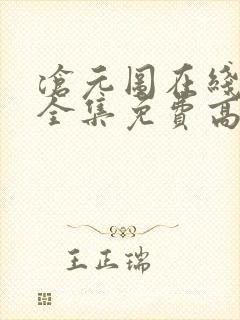 沧元图在线
全集免费高
王正瑞